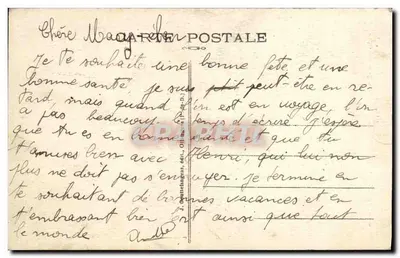 Chère
CARTE POSTALE
Je te souhaite une bonne fête et une
bonne santé. Je suis peut-être en re-
tard, mais quand l'on est en voyage, l'on
a pas beaucoup le temps d'écrire. J'espère
que tu es en bonne santé et que tu
t'amuses bien avec Henri, qui lui non
plus ne doit pas s'ennuyer. Je termine en
te souhaitant de bonnes vacances et en
t'embrassant bien fort ainsi que tout
le monde